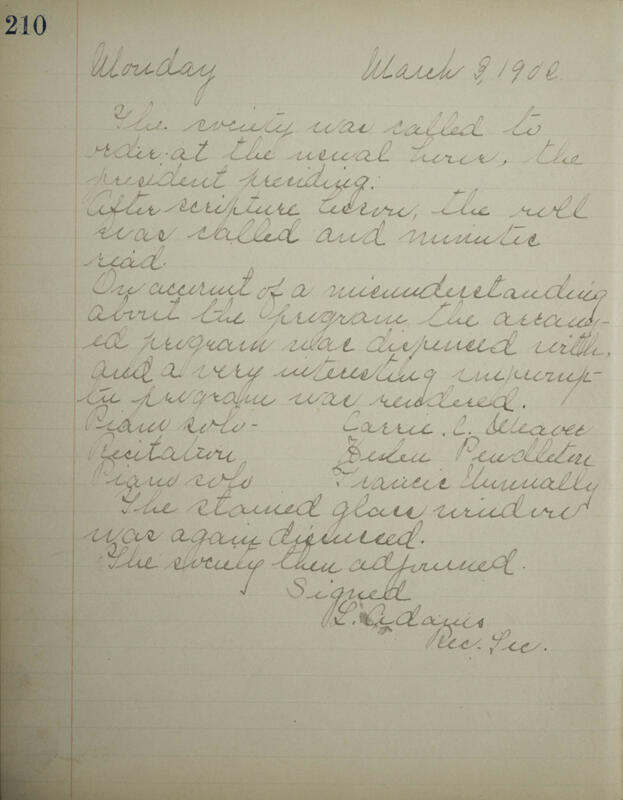 210
Monday March 3, 1902
The society was called to
order at the usual hour, the
president presiding.
After scripture lesson, the roll
was called and minutes
read.
On account of a misunderstanding
about the program, the arrang-
ed program was dispenced with,
and a very interesting impromp-
tu program was rendered.
Piano solo - Carrie. C. Weaver
Recitation Helen Pendleton
Piano solo Francis Nunnally
The stained glass window
was again discussed.
The society then adjourned.
Signed
L. Adams
Rec. Sec.